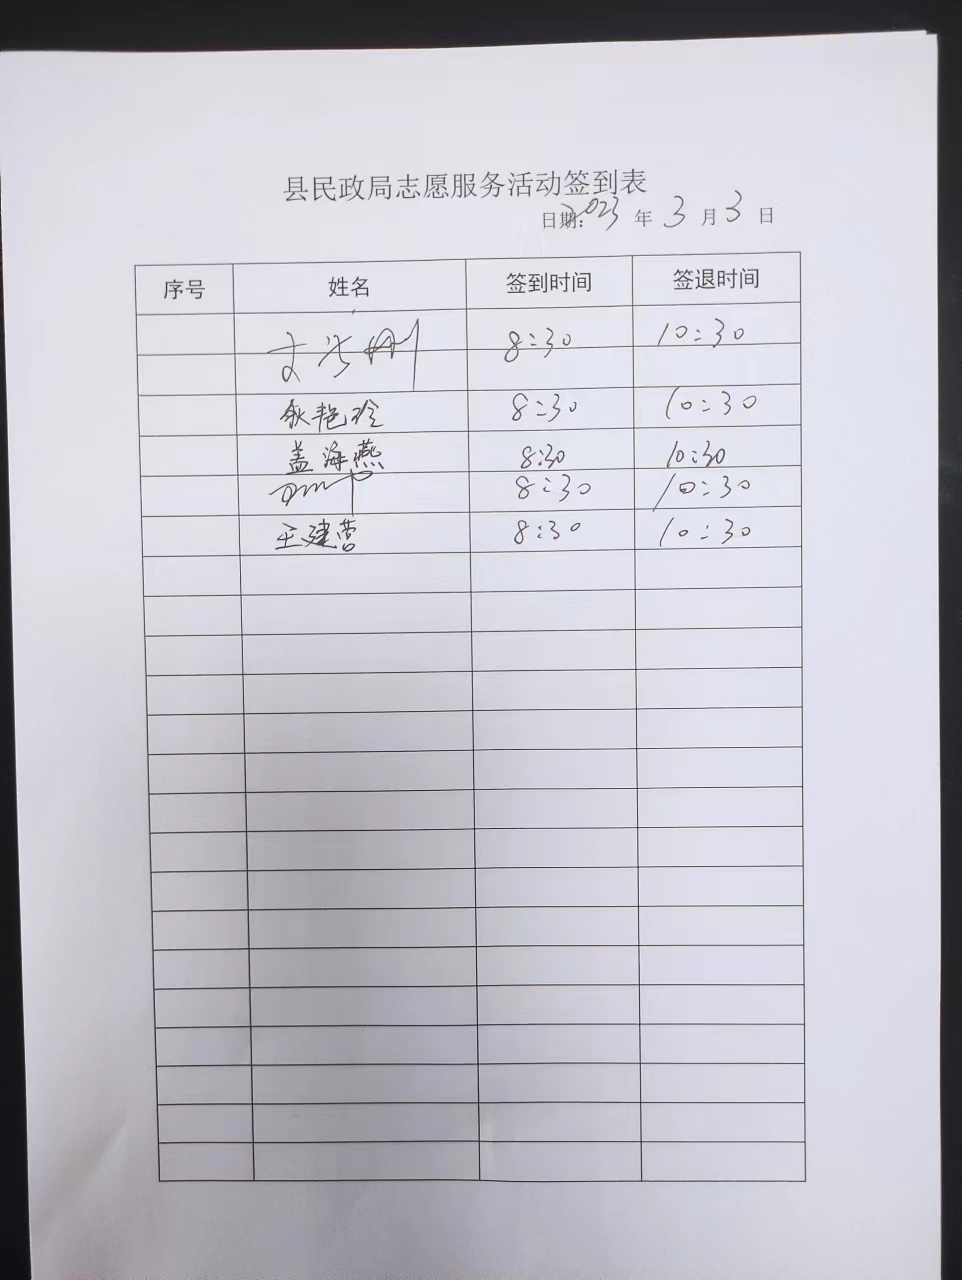 县民政局志愿服务活动签到表
日期: 2023 年 3 月 3 日
序号 姓名 签到时间 签退时间
8:30 10:30
耿艳玲 8:30 10:30
盖海燕 8:30 10:30
8:30 10:30
王建营 8:30 10:30